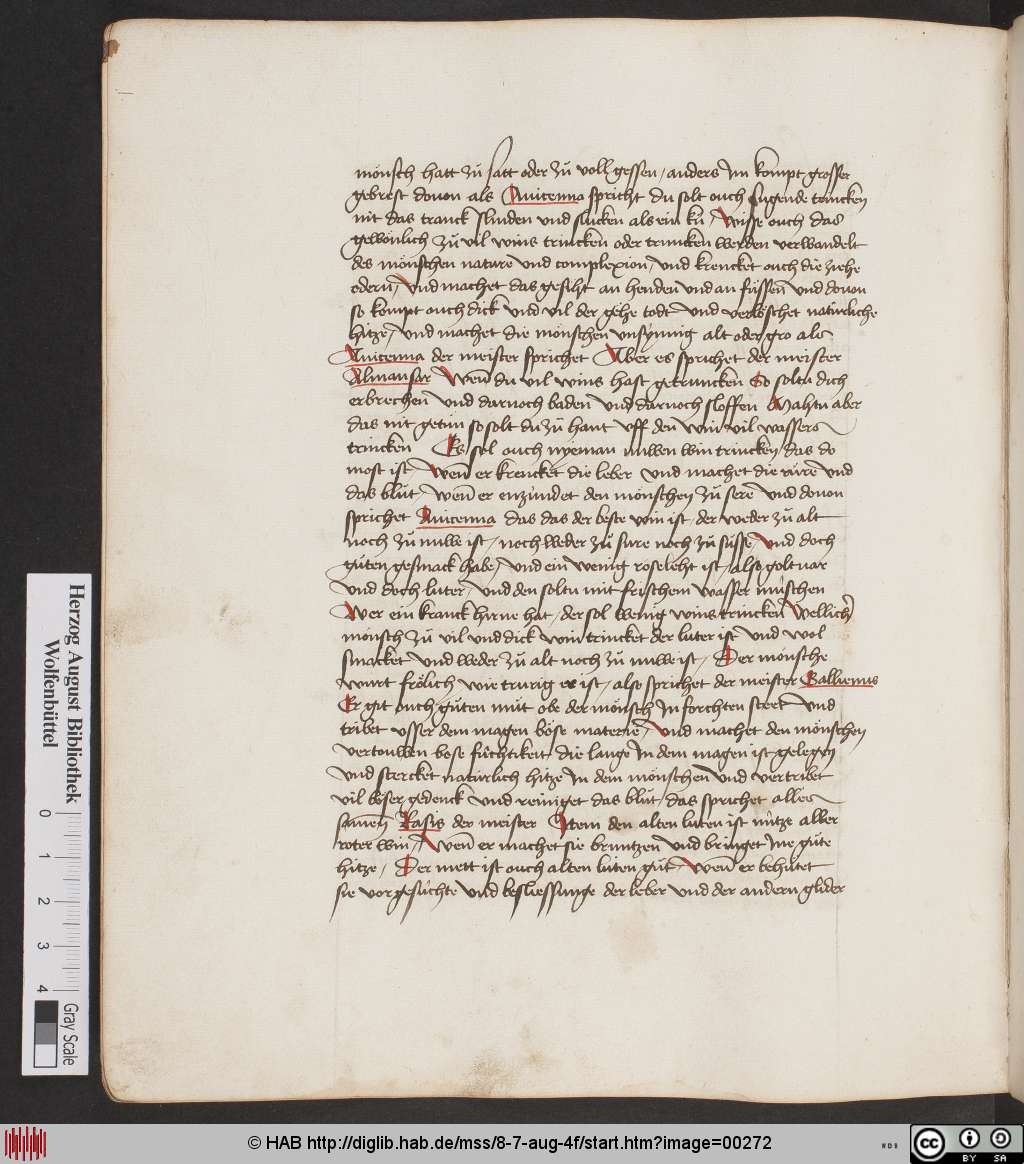 mönsch hatt zü satt oder zü voll gessen / anders Im kompt grosser
gebrest douon als Auicenna spricht du solt ouch sugende trincken
nit das tranck slinden und slucken als ein kü / Wisse ouch das
gewönlich zü vil wins trincken oder truncken werden verwandelt
des mönschen nature und complexion / und krencket ouch die ziehe
odern / Und machet das gesiht an henden und an füssen und douon
so kompt ouch dick und vil der gehe todt und verlöschet natürliche
hitze / und machet die mönschen unsynnig alt oder gro als
Auicenna der meister sprichet Aber es sprichet der meister
Almansor Wenn du vil wins hast getruncken So soltu dich
erbrechen und darnoch baden und darnoch sloffen Mahtu aber
das nit getün so solt du zü hant uff den win vil wassers
trincken Es sol ouch nyeman nuwen win trincken / das do
most ist / Wenn er krencket die leber und machet die rüre und
das blüt / Wenn er enzündet den mönschen zü sere und douon
sprichet Auicenna das das der beste win ist / der weder zü alt
noch zü nuwe ist / noch weder zü sure noch zü süsse / Und doch
güten gesmack habe / und ein wenig roseleht ist / also goltuar
und doch luter / und den soltu mit frischem wasser müschen
Wer ein kranck hirne hat / der sol wenig wins trincken Wellicher
mönsch zü vil und dick win trincket der luter ist und wol
smacket und weder zü alt noch zü nuwe ist / Der mönsche
wurt frölich wie trurig er ist / also sprichet der meister Gallienus
Er git ouch güten müt obe der mönsch In forchten steet und
tribet usser dem magen böse materie / Und machet den mönschen
vertouwen bose füchtikeit die lange In dem magen ist gelegen
und stercket natürlich hitze In dem mönschen und vertribet
vil böser gedenck und reiniget das blüt / das sprichet alles
samen Rasis der meister Item den alten luten ist nütze alber
roter win / Wenn er machet sie bruntzen und bringet Ine güte
hitze / Der mett ist ouch alten luten güt / Wenn er behütet
sie vor gesühte und besliessunge der leber und der andern glider
Herzog August Bibliothek
Wolfenbüttel
0 1 2 3 4
Gray Scale
© HAB http://diglib.hab.de/mss/8-7-aug-4f/start.htm?image=00272
WDB
cc BY SA